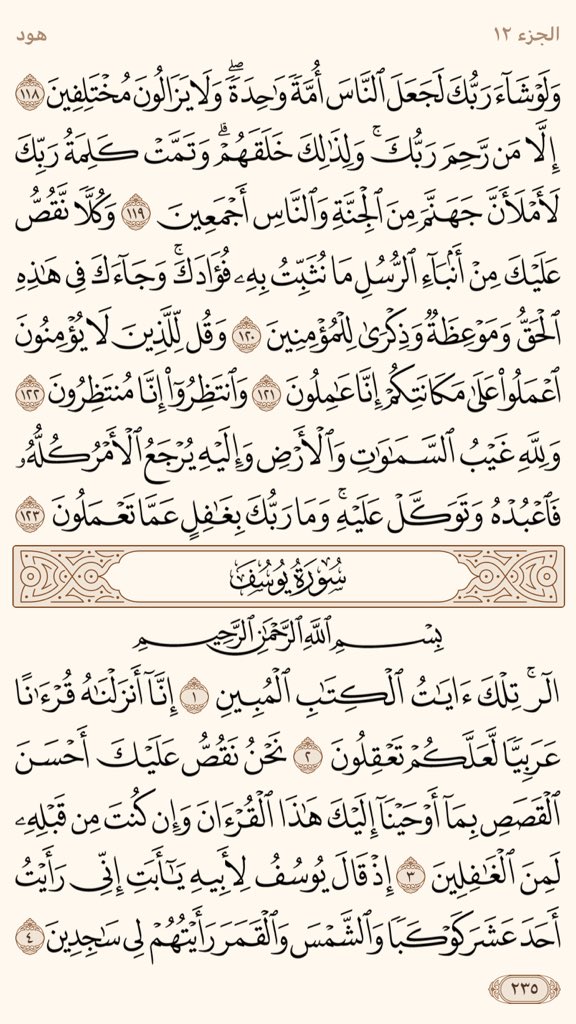 الجزء ١٢
هود
وَلَوْ شَآءَ رَبُّكَ لَجَعَلَ ٱلنَّاسَ أُمَّةً وَٰحِدَةً ۖ وَلَا يَزَالُونَ مُخْتَلِفِينَ ١١٨
إِلَّا مَن رَّحِمَ رَبُّكَ ۚ وَلِذَٰلِكَ خَلَقَهُمْ ۗ وَتَمَّتْ كَلِمَةُ رَبِّكَ
لَأَمْلَأَنَّ جَهَنَّمَ مِنَ ٱلْجِنَّةِ وَٱلنَّاسِ أَجْمَعِينَ ١١٩ وَكُلًّا نَّقُصُّ
عَلَيْكَ مِنْ أَنۢبَآءِ ٱلرُّسُلِ مَا نُثَبِّتُ بِهِۦ فُؤَادَكَ ۚ وَجَآءَكَ فِى هَٰذِهِ
ٱلْحَقُّ وَمَوْعِظَةٌ وَذِكْرَىٰ لِلْمُؤْمِنِينَ ١٢٠ وَقُل لِّلَّذِينَ لَا يُؤْمِنُونَ
ٱعْمَلُوا۟ عَلَىٰ مَكَانَتِكُمْ إِنَّا عَٰمِلُونَ ١٢١ وَٱنتَظِرُوٓا۟ إِنَّا مُنتَظِرُونَ ١٢٢
وَلِلَّهِ غَيْبُ ٱلسَّمَٰوَٰتِ وَٱلْأَرْضِ وَإِلَيْهِ يُرْجَعُ ٱلْأَمْرُ كُلُّهُۥ
فَٱعْبُدْهُ وَتَوَكَّلْ عَلَيْهِ ۚ وَمَا رَبُّكَ بِغَٰفِلٍ عَمَّا تَعْمَلُونَ ١٢٣
سُورَةُ يُوسُفَ
بِسْمِ ٱللَّهِ ٱلرَّحْمَٰنِ ٱلرَّحِيمِ
الٓر ۚ تِلْكَ ءَايَٰتُ ٱلْكِتَٰبِ ٱلْمُبِينِ ١ إِنَّآ أَنزَلْنَٰهُ قُرْءَٰنًا
عَرَبِيًّا لَّعَلَّكُمْ تَعْقِلُونَ ٢ نَحْنُ نَقُصُّ عَلَيْكَ أَحْسَنَ
ٱلْقَصَصِ بِمَآ أَوْحَيْنَآ إِلَيْكَ هَٰذَا ٱلْقُرْءَانَ وَإِن كُنتَ مِن قَبْلِهِۦ
لَمِنَ ٱلْغَٰفِلِينَ ٣ إِذْ قَالَ يُوسُفُ لِأَبِيهِ يَٰٓأَبَتِ إِنِّى رَأَيْتُ
أَحَدَ عَشَرَ كَوْكَبًا وَٱلشَّمْسَ وَٱلْقَمَرَ رَأَيْتُهُمْ لِى سَٰجِدِينَ ٤
٢٣٥